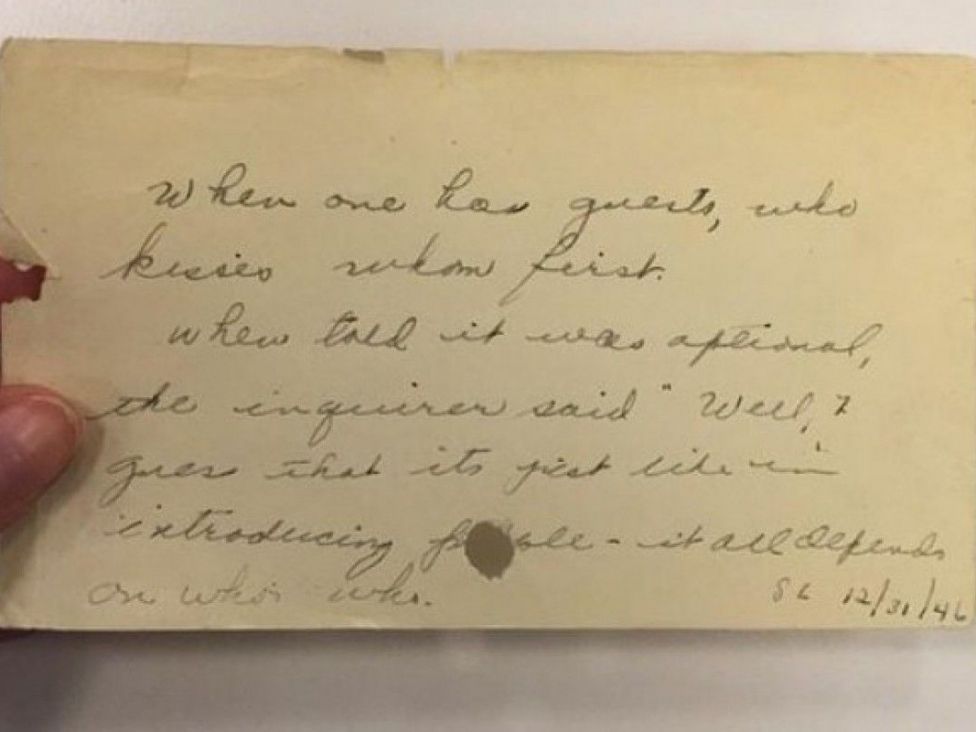 When one has guests, who
kisses whom first.
When told it was optional,
the inquirer said " Well, I
guess that its just like in
introducing people - it all depends
on who's who.
SL 12/31/46